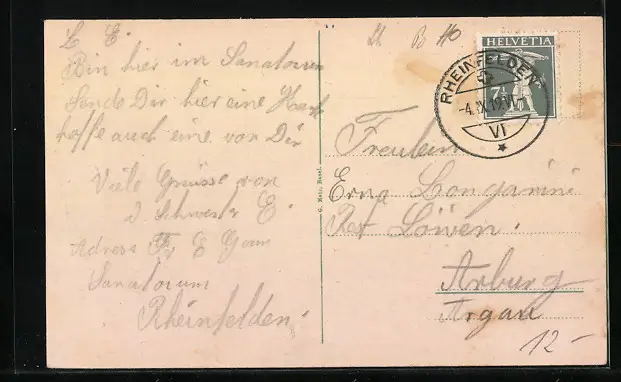 L. E.
Bin hier im Sanatorium
Sende Dir hier eine Karte
hoffe auch eine von Dir
Viele Grüsse von
d Schwester E.
Adress Fr E
Sanatorium
Rheinfelden.
HELVETIA
7½
RHEINFELDEN
-4.IX.19.VI
VI
G. Metz, Basel.
Freulein
Erna Longarini
Rest Löwen.
Arburg
Argau
12-